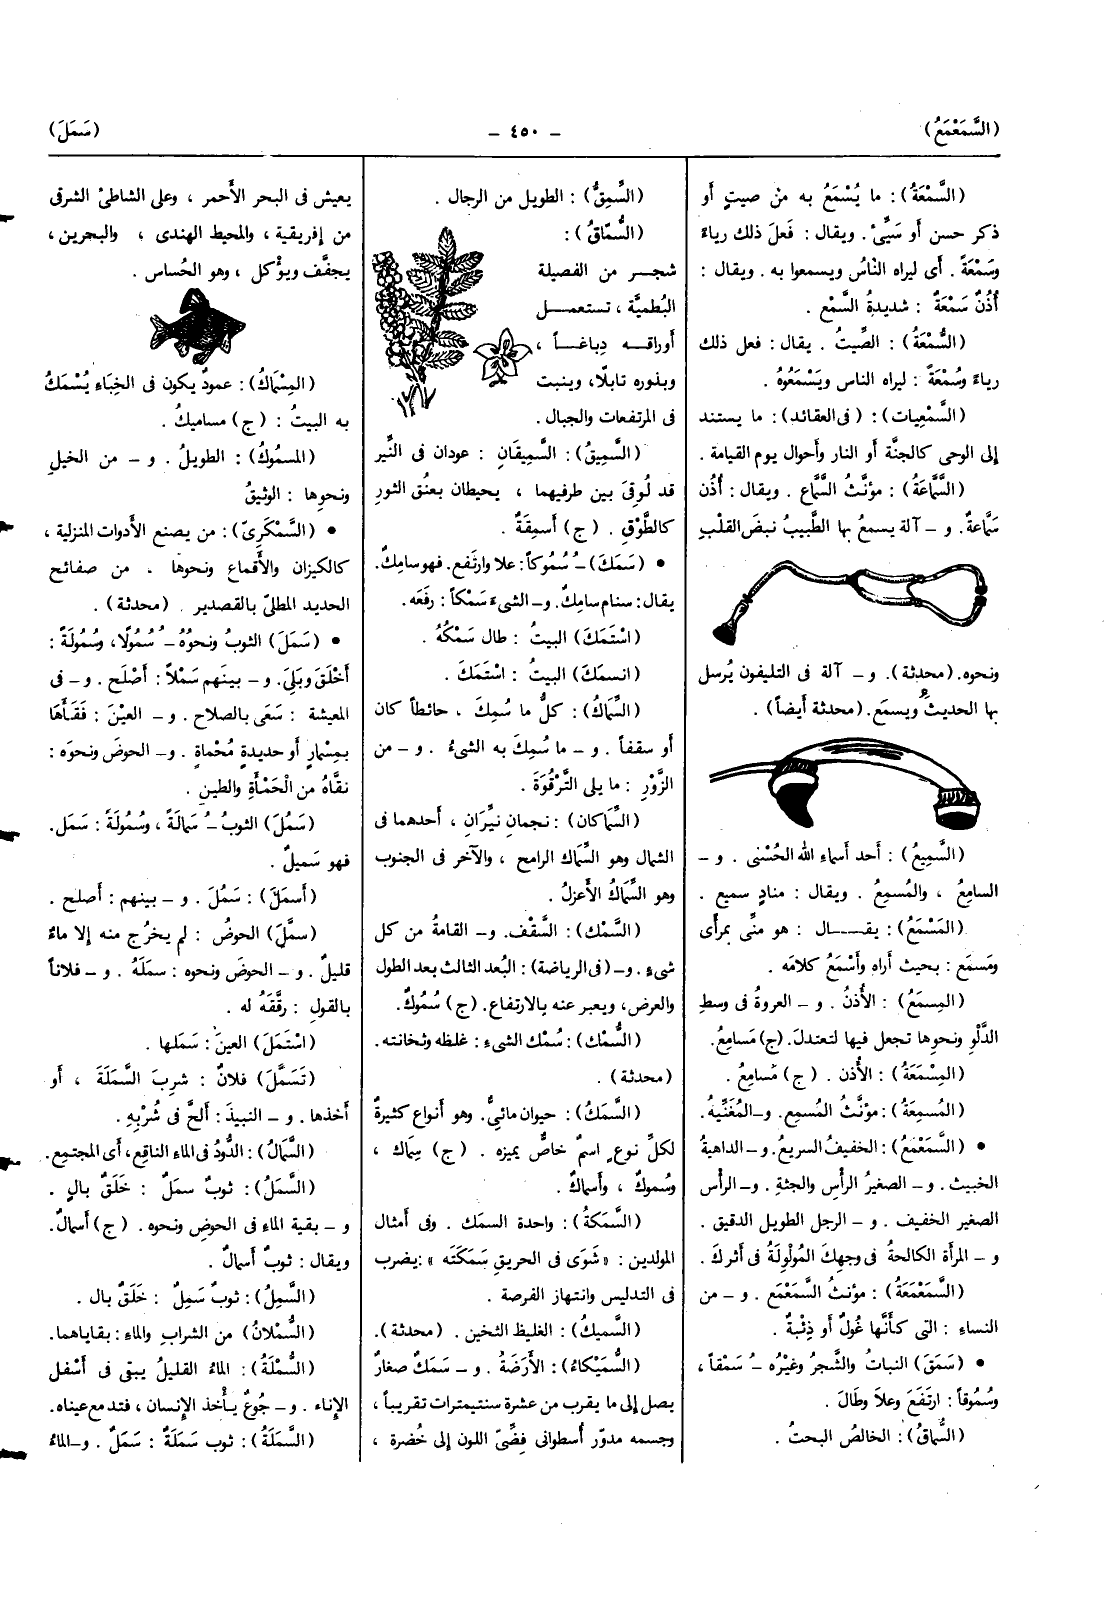 (السَّمَعْمَعُ)
– ٤٥٠ –
(سَمَلَ)
(السَّمْعَةُ): ما يُسْمَعُ به منْ صيتٍ أَو
ذكر حسن أَو سَيِّئٍ. ويقال: فَعلَ ذلك رياءً
وسَمْعَةً. أَى ليراه النَّاسُ ويسمعوا به. ويقال:
أُذُنٌ سَمْعَةٌ : شديدةُ السَّمْع .
(السُّمْعَةُ) : الصِّيتُ . يقال : فعل ذلك
رياءً وسُمْعَةً : ليراه الناس ويَسْمَعُوهُ .
(السَّمْعِيات): (فى العقائد): ما يستند
إلى الوحى كالجنَّة أَو النار وأَحوال يوم القيامة .
(السَّمَّاعَةُ) : مؤنَّثُ السَّمَّاع . ويقال: أُذُن
سَمَّاعةٌ. و – آلة يسمعُ بها الطَّبيبُ نبضَ القلْبِ
ونحوه. (محدثة). و – آلة فى التليفون يُرسل
بها الحديثُ ويسمَع. (محدثة أَيضاً) .
(السَّمِيعُ) : أحد أسماءِ الله الحُسْنى . و –
السامِعُ ، والمُسمِعُ . ويقال : منادٍ سميع .
(المَسْمَعُ): يقــال : هو منِّى بمرأًى
ومَسمَع : بحيث أراه وأَسْمَعُ كلامَه .
(المِسمَعُ) : الأُذنُ . و – العروةُ فى وسطِ
الدَّلْوِ ونحوِها تجعل فيها لتعتدلَ. (ج) مَسامِعُ.
(المِسْمَعَةُ) : الأُذن . (ج) مَسامِعُ .
(المُسمِعَةُ) : مؤنَّثُ المُسمِع. و – المُغَنِّيةُ.
• (السَّمَعْمَعُ): الخفيفُ السريعُ. و – الداهيةُ
الخبيث . و – الصغيرُ الرأْسِ والجثةِ . و – الرأس
الصغير الخفيف . و – الرجل الطويل الدقيق .
و – المرأَة الكالحةُ فى وجهِكَ المُوَلْوِلَةُ فى أَثرِكَ .
(السَّمَعْمَعَةُ) : مؤنثُ السَّمَعْمَع . و – من
النساء : التى كأَنَّها غُولٌ أَو ذِئبةٌ .
• (سَمَقَ) النباتُ والشَّجرُ وغيْرُه – ُ سَمْقاً ،
وسُموقاً: ارتَفَعَ وعلاَ وطَالَ .
(السُّمَاقُ) : الخالصُ البحتُ .
(السِّمِقُّ) : الطويل من الرجال .
(السُّمَّاقُ) :
شجـر من الفصيلة
البُطميَّة ، تستعمــل
أَوراقــه دِباغــاً ،
وبذوره تابلًا، وينبت
فى المرتفعات والجبال .
(السَّمِيقُ): السَّمِيقَانِ : عودان فى النِّير
قد لُوقِىَ بين طرفيهما ، يحيطان بعنُق الثورِ
كالطَّوْقِ . (ج) أَسمِقَةٌ .
• (سَمَكَ) – ُ سُمُوكاً: علا وارتَفع. فهو سامِكٌ.
يقال: سنام سامِكٌ. و – الشىءَ سَمْكاً: رفَعَه.
(اسْتَمَكَ) البيتُ : طال سَمْكُهُ .
(انسمَكَ) البيتُ : اسْتَمَكَ .
(السِّمَاكُ): كلُّ ما سُمِكَ ، حائطاً كان
أَو سقفاً . و – ما سُمِكَ به الشىءُ . و – من
الزَّوْرِ : ما يلى التَّرْقُوَةَ .
(السِّمَاكان) : نجمانِ نيِّرانِ ، أحدهما فى
الشمال وهو السِّمَاك الرامح ، والآخر فى الجنوب
وهو السِّمَاكُ الأَعزلُ .
(السَّمْك): السَّقْف. و – القامةُ من كل
شىءٍ . و – (فى الرياضة) : البُعد الثالث بعد الطول
والعرض، ويعبر عنه بالارتفاع. (ج) سُمُوكٌ.
(السُّمْك) : سُمْك الشىءِ : غلظه وثخانته.
(محدثة) .
(السَّمَكُ) : حيوان مائىٌّ. وهو أنواع كثيرةٌ
لكلِّ نوعٍ اسمٌ خاصٌّ يميزه . (ج) سِمَاك ،
وسُموكٌ ، وأَسماكٌ .
(السَّمَكَةُ) : واحدة السمَك . وفى أمثال
المولدين : «شَوَى فى الحريقِ سَمَكَتَه» : يضرب
فى التدليس وانتهاز الفرصة .
(السَّميكُ) : الغليظ الثخين . (محدثة).
(السُّمَيْكَاءُ): الأَرَضَةُ . و – سَمَكٌ صغارٌ
يصل إلى ما يقرب من عشرة سنتيمترات تقريباً ،
وجسمه مدوّر أسطوانى فِضّىّ اللون إلى خُضرة ،
يعيش فى البحر الأَحمر ، وعلى الشاطئ الشرقى
من إفريقية ، والمحيط الهندى ، والبحرين ،
يجفَّف ويؤكل ، وهو الحُساس .
(المِسْمَاكُ): عمودٌ يكون فى الخِبَاءِ يُسْمَكُ
به البيتُ : (ج) مساميكُ .
(المسمُوكُ) : الطويلُ . و – من الخيلِ
ونحوِها : الوثيقُ
• (السَّمْكَرِىّ) : من يصنع الأَدوات المنزلية ،
كالكيزان والأَقماع ونحوها . من صفائح
الحديد المطلىّ بالقصدير . (محدثة) .
• (سَمَلَ) الثوبُ ونحوُهُ – ُ سُمُولًا، وسُمُولَةً :
أَخْلَقَ وبَلِىَ. و – بينَهم سَمْلاً : أَصْلَح . و – فى
المعيشة : سَعَى بالصلاح . و – العيْنَ : فَقَأَهَا
بمِسْمارٍ أَو حديدةٍ مُحْماةٍ . و – الحوضَ ونحوَه :
نقَّاهُ من الْحَمْأَةِ والطينِ .
(سَمُلَ) الثوبُ – ُ سَمَالَةً ، وسُمُولَةً : سَمَل.
فهو سَميلٌ .
(أَسمَلَ) : سَمُلَ . و – بينهم : أَصلح .
(سمَّلَ) الحوضُ : لم يخرُج منه إلا ماءٌ
قليلٌ . و – الحوضَ ونحوه : سمَلَهُ . و – فلاناً
بالقولِ : رقَّقَهُ له .
(اسْتَمَلَ) العينَ : سَمَلها .
(تَسَمَّلَ) فلانٌ : شرِبَ السَّمَلَةَ ، أَو
أَخذها . و – النبيذَ : أَلحَّ فى شُرْبِهِ .
(السَّمَالُ) : الدُّودُ فى الماءِ الناقِعِ، أَى المجتمِع.
(السَّمَلُ) : ثوبٌ سملٌ : خَلَقٌ بالٍ .
و – بقية الماءِ فى الحوضِ ونحوه . (ج) أَسمالٌ.
ويقال : ثوبٌ أَسمالٌ .
(السَّمِلُ) : ثوبٌ سَمِلٌ : خَلَقٌ بال .
(السُّمْلانُ) من الشرابِ والماءِ : بقاياهما.
(السُّمْلَةُ) : الماءُ القليلُ يبقى فى أَسْفل
الإِناء . و – جُوعٌ يأْخذ الإنسان ، فتدمع عيناه.
(السَّمَلَةُ) : ثوب سَمَلَةٌ : سَمَلٌ . و – الماءُ